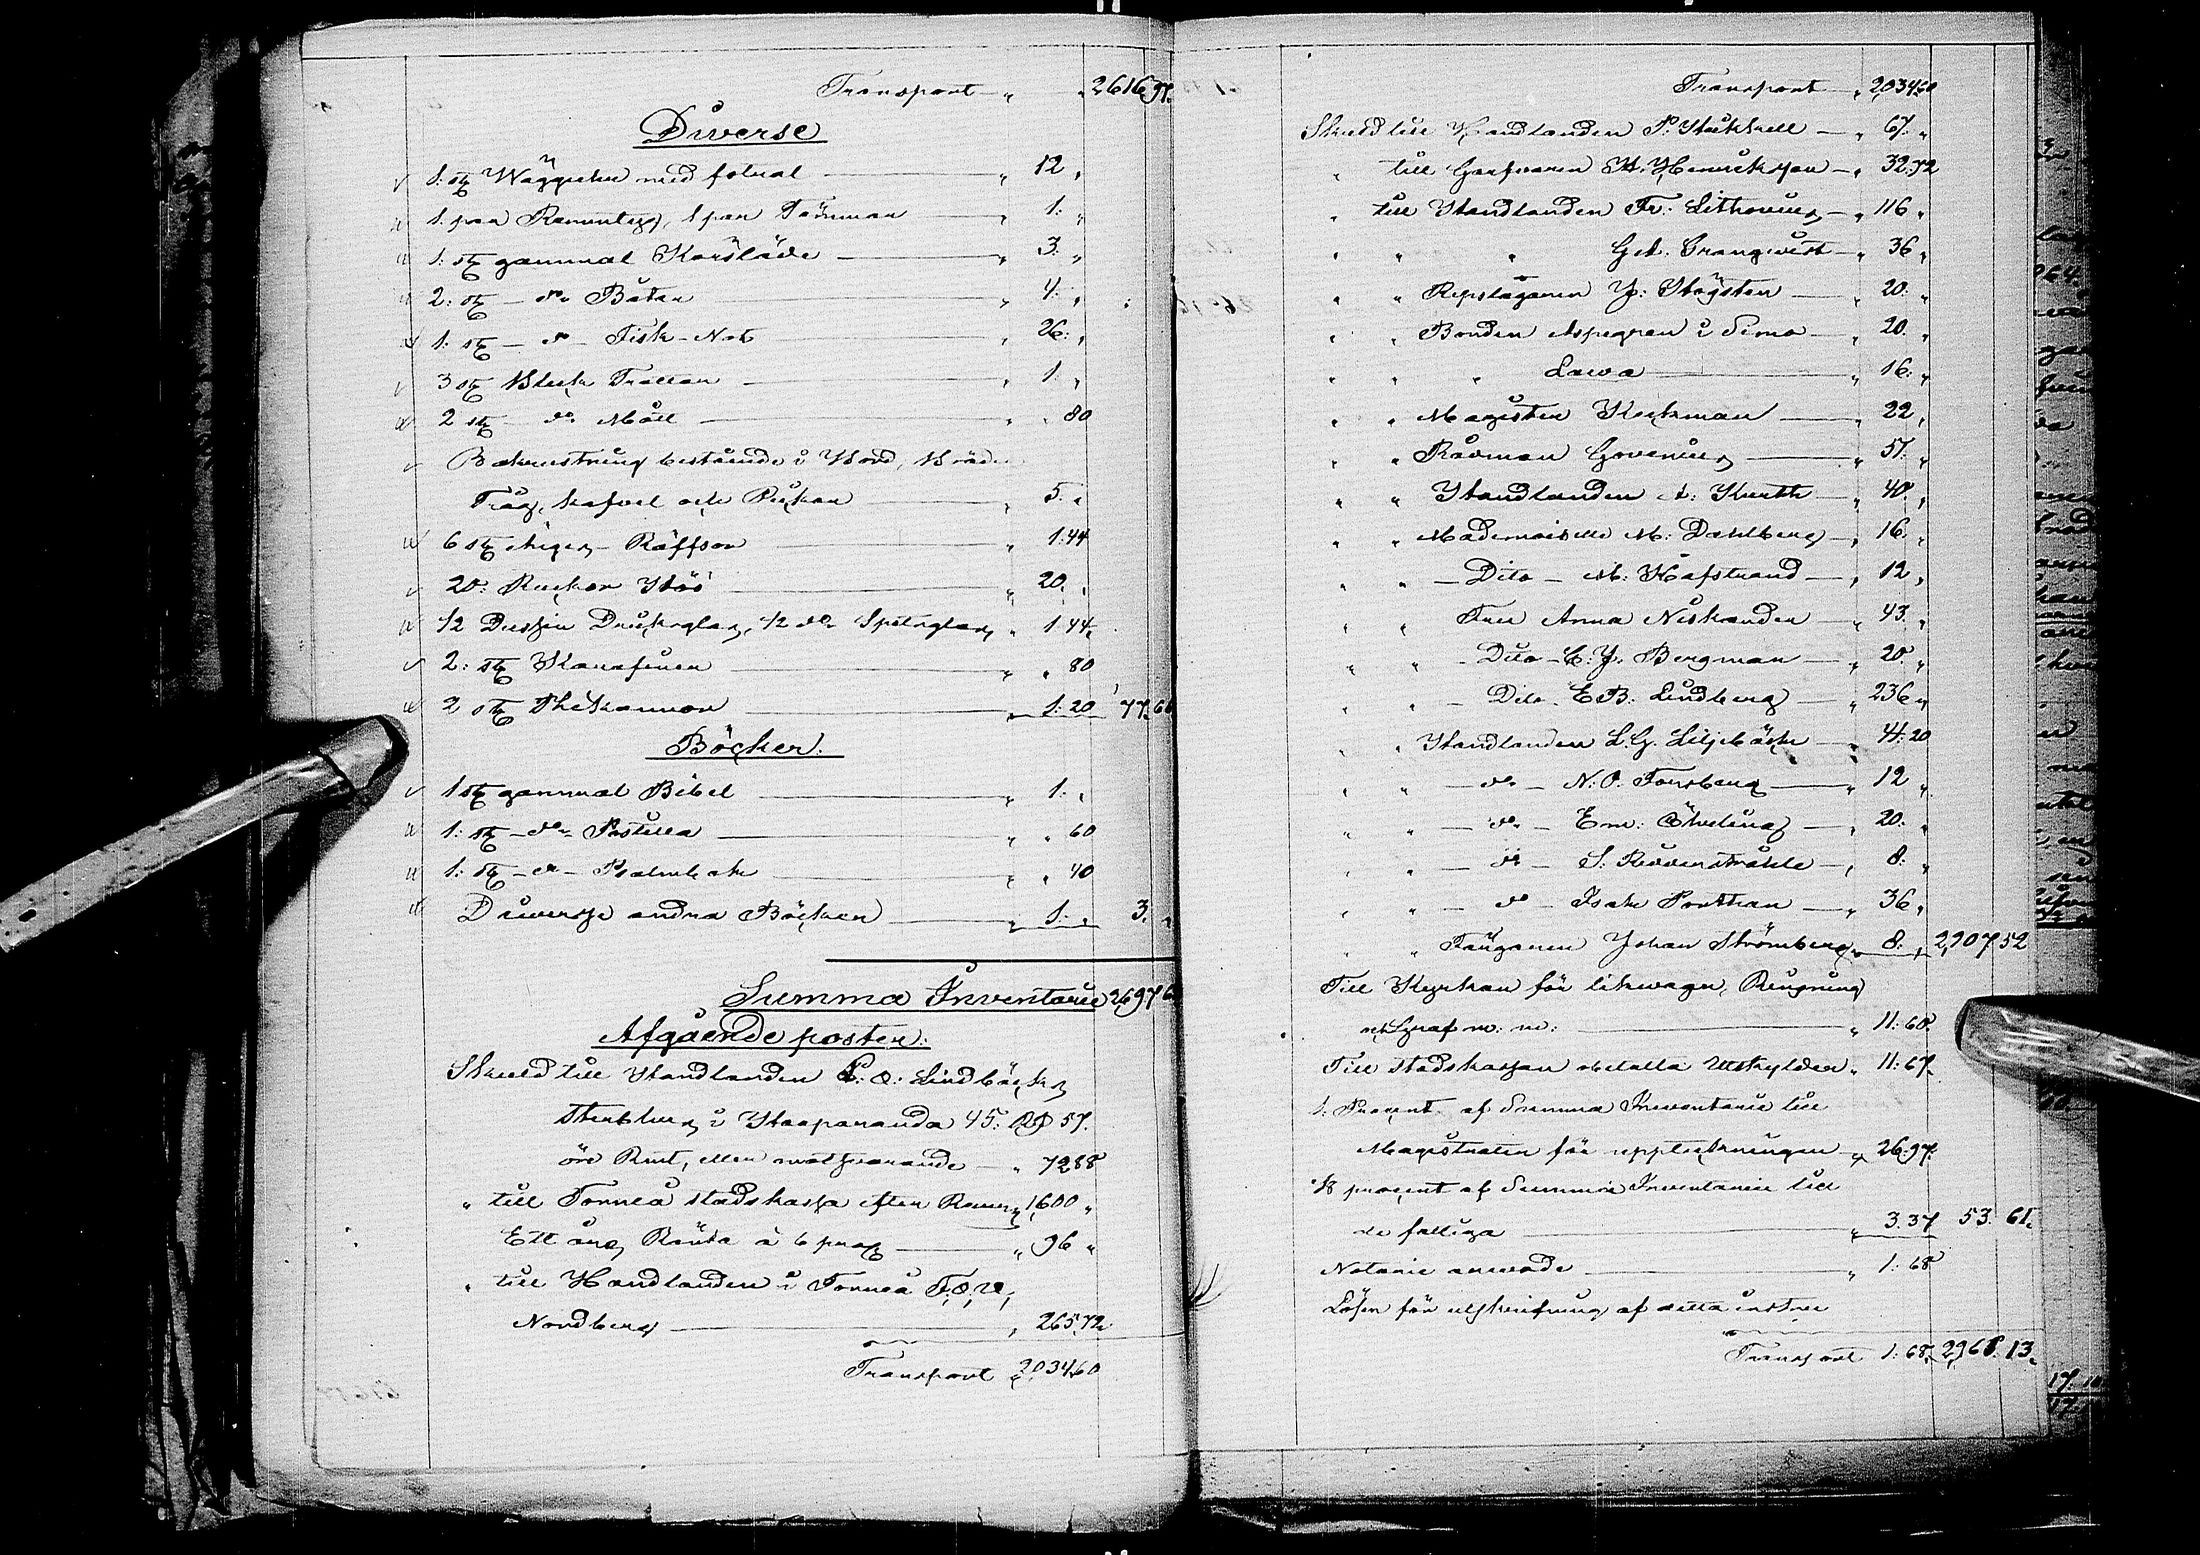 Transport „ 2,616 97.
Diverse
1: st Wägguhr med fotral „ 12 „
1. par Remmtyg, 1 par Tömmar „ 1: „
1: st gammal Korsläde „ 3: „
2: st - do Båtar „ 4: „
1: st - do - Fisk-Not „ 26: „
3 st Bleck Trattar „ 1: „
2 st - do Mått „ „ 80
Bakrustning bestående i Bord, Bräde
Tråg, skofvel och Pickar „ 5: „
6 st Räffsor „ 1:44
20: Rückor Hö „ 20. „
1/2 Dussin Dricksglas, 1/2 do Spitsglas „ 1 44.
2: st Karafiner „ „ 80
2 st Thekannor „ 1:20 77. 68
Böcker.
1 st gammal Bibel „ 1: „
1: st - do Postilla „ „ 60
1: st - do - Psalmbok „ „ 40
Diverse andra Böcker „ 1: „ 3. „
Summa Inventarie 2,697 6
Afgående poster.
Skuld till Handlanden P. O. Lindbäcks
Sterbhus i Haaparanda 45: RD 57.
öre Rmt, eller motsvarande „ 72 88
„ till Torneå stadskassa efter Revers 1,600 „
Ett års Ränta à 6 proc „ 96 „
„ till Handlanden i Torneå F. O. U.
Nordberg „ 265,72
Transport 2,034 60
Transport „ 2,034 60
Skuld till Handlanden P. „ 67. „
„ till Garfvaren H. Henricksson „ 32.72
„ till Handlanden Fr: Lithovius „ 116 „
„ „ „ Gst. Granqvist „ 36 „
„ „ Repslagaren J: Högsten „ 20: „
„ „ Bonden Aspegren i Simo „ 20. „
„ „ „ Lawa „ 16: „
„ „ Magister Keckman „ 22 „
„ „ Rådman Govenius „ 57. „
„ „ Handlanden A: Kurth „ 40. „
„ „ Mademoiselle M: Dahlberg „ 16. „
„ „ - Dito - M: Hafstrand „ 12 „
„ „ Fru Anna Niskander „ 43. „
„ „ - Dito - C. J. Bergman „ 20. „
„ „ - Dito - E B. Lindberg „ 236 „
„ „ Handlanden L. G. Liljebäck „ 4:20
„ „ - do - N: O. Forsberg „ 12 „
„ „ - do - Em: Öhrling „ 20: „
„ „ - do - S: Ridderstråhle „ 8: „
„ „ - do - Isak Porthan „ 36 „
„ „ Färgaren Johan Strömberg „ 8. „ 2,907 52
Till Kyrkan för likwagn, Ringning
och Graf m: m: „ 11:60.
Till stadskassan obetalta Utskylder „ 11:67.
1. Procent af Summa Inventarie till
Magistraten för uppteckningen „ 26:97.
1/8 procent af Summa Inventarie till
de fattiga „ 3.37 53. 61.
Notarie arwode „ 1:68
Lösen för utskrifning af detta instru
Transport 1:68. 2,961. 13.